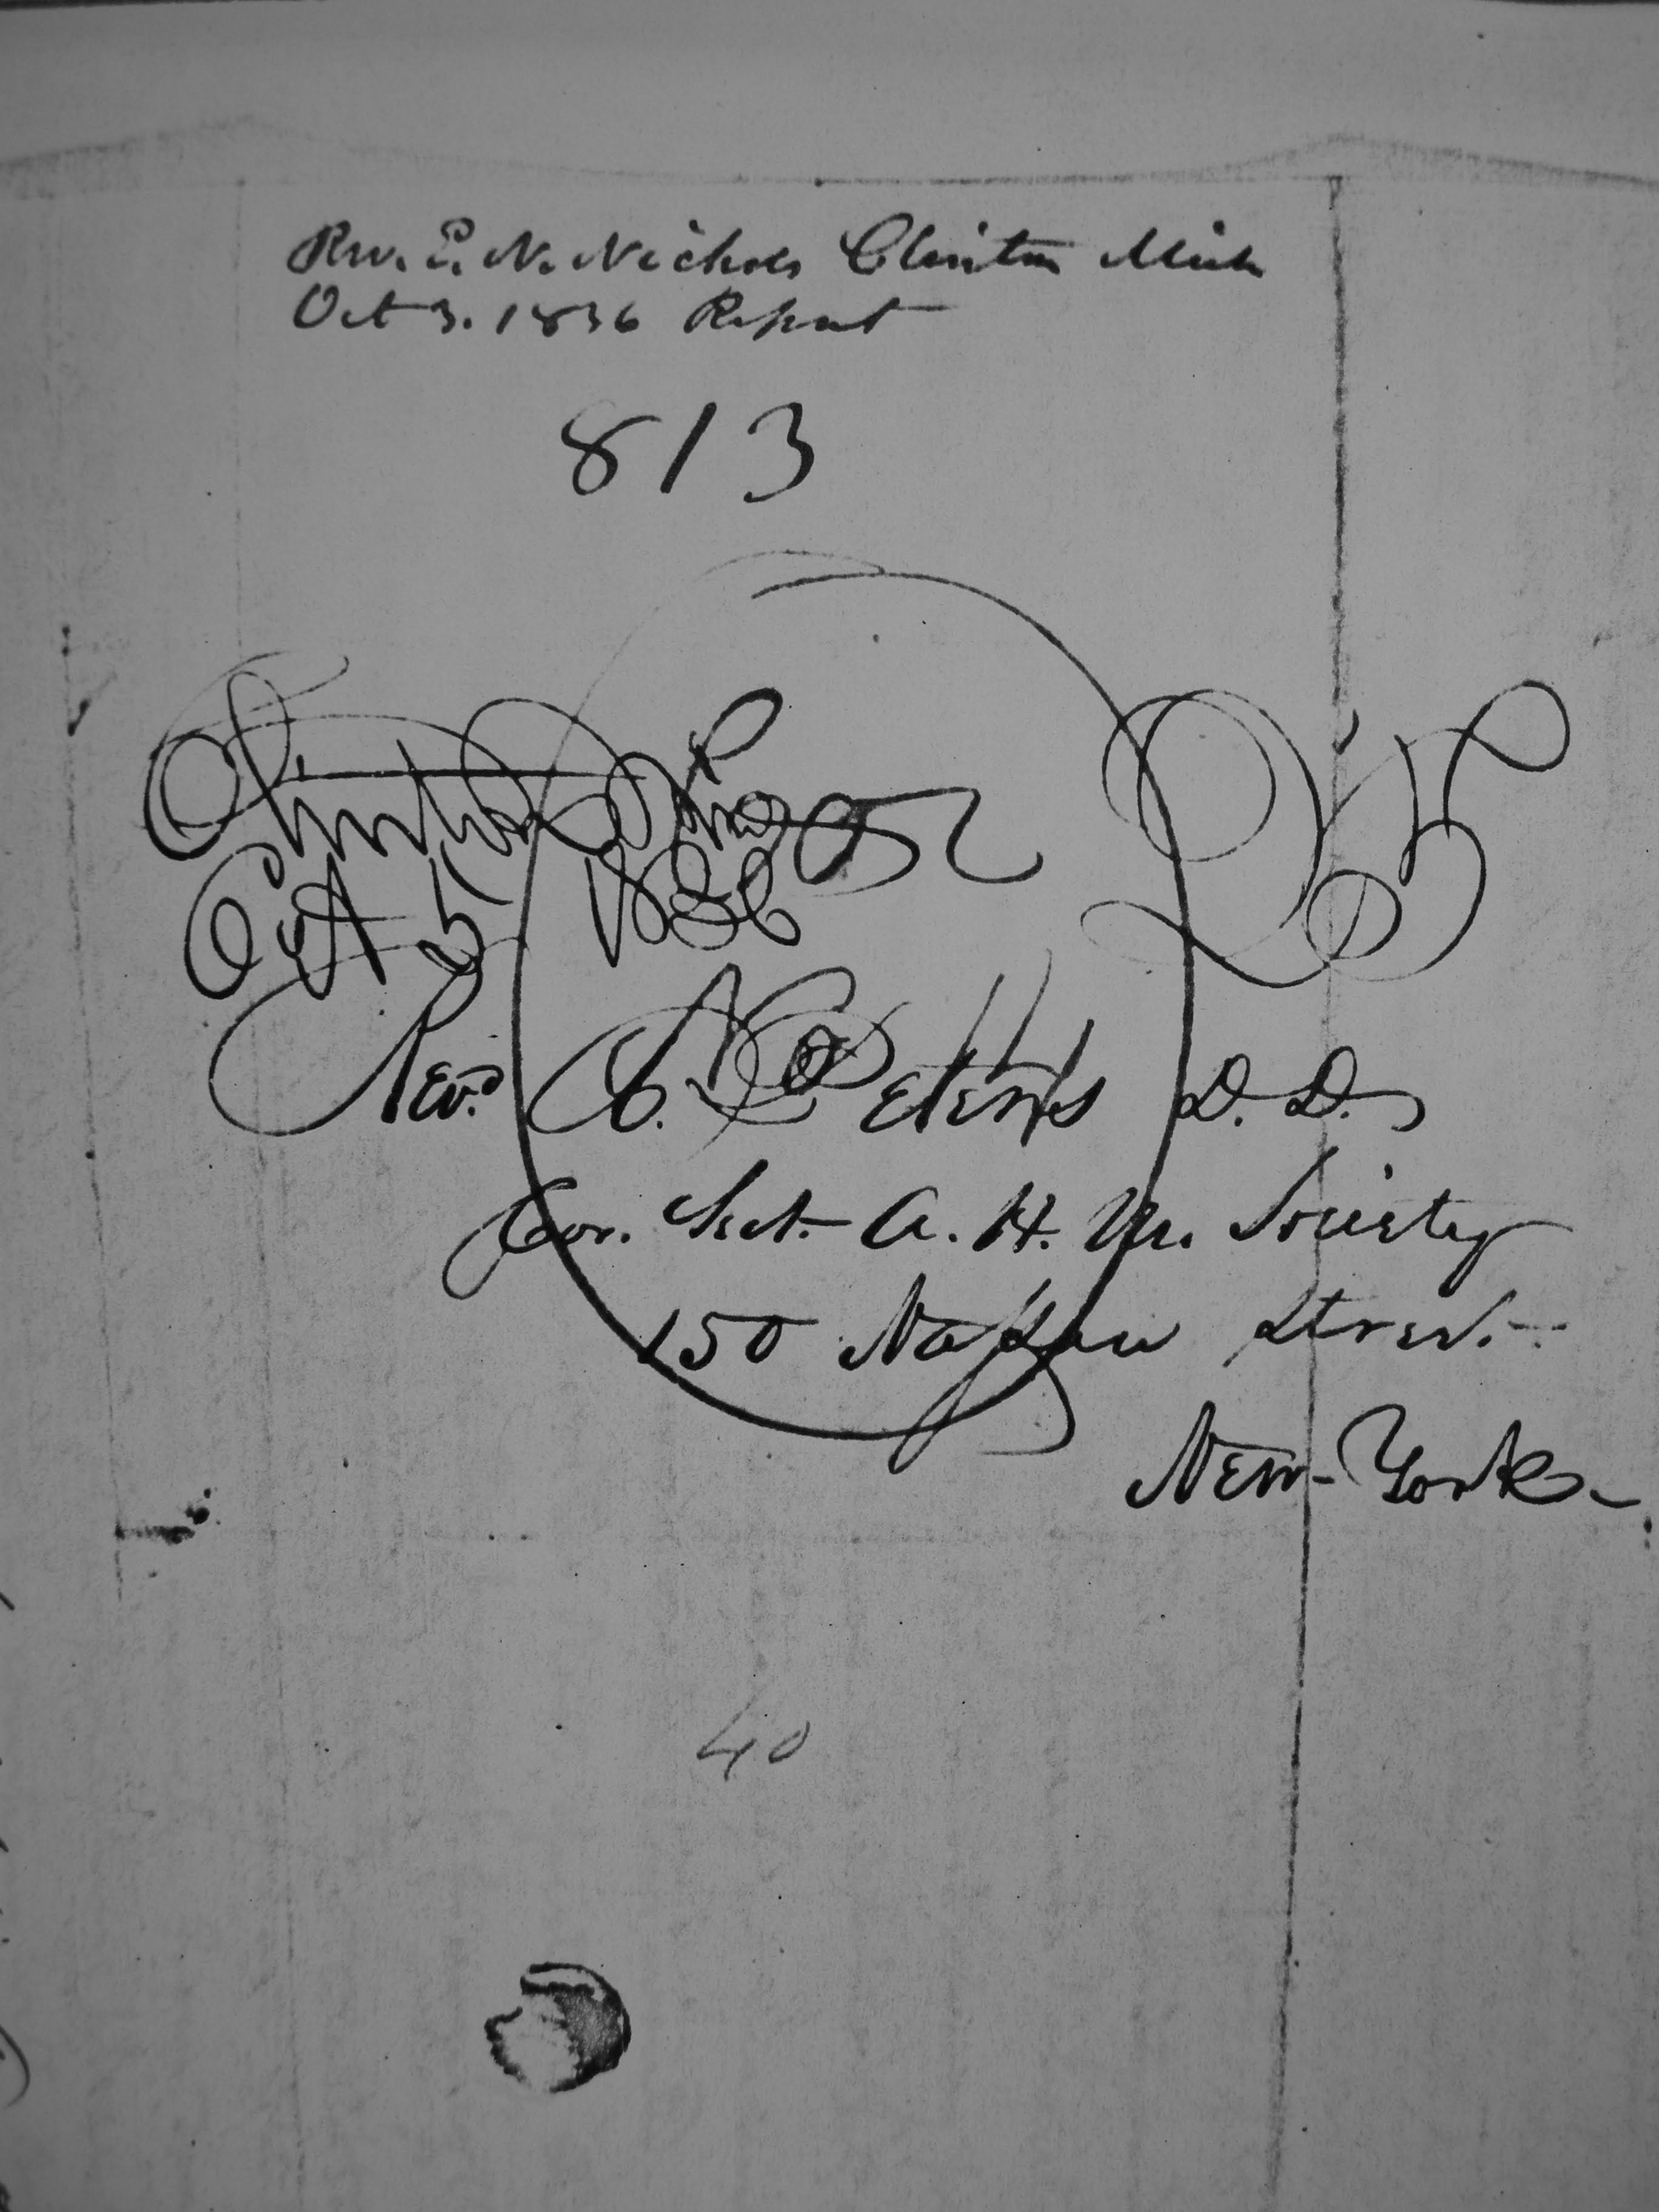 Rev. E. N. Nichols Clinton Mich
Oct 3. 1836 Report
813
Clinton
Oct 5 1836
Rev. A. Peters D. D.
Cor. Sect. A. H. M. Society
150 Nassau Street
New-York
40